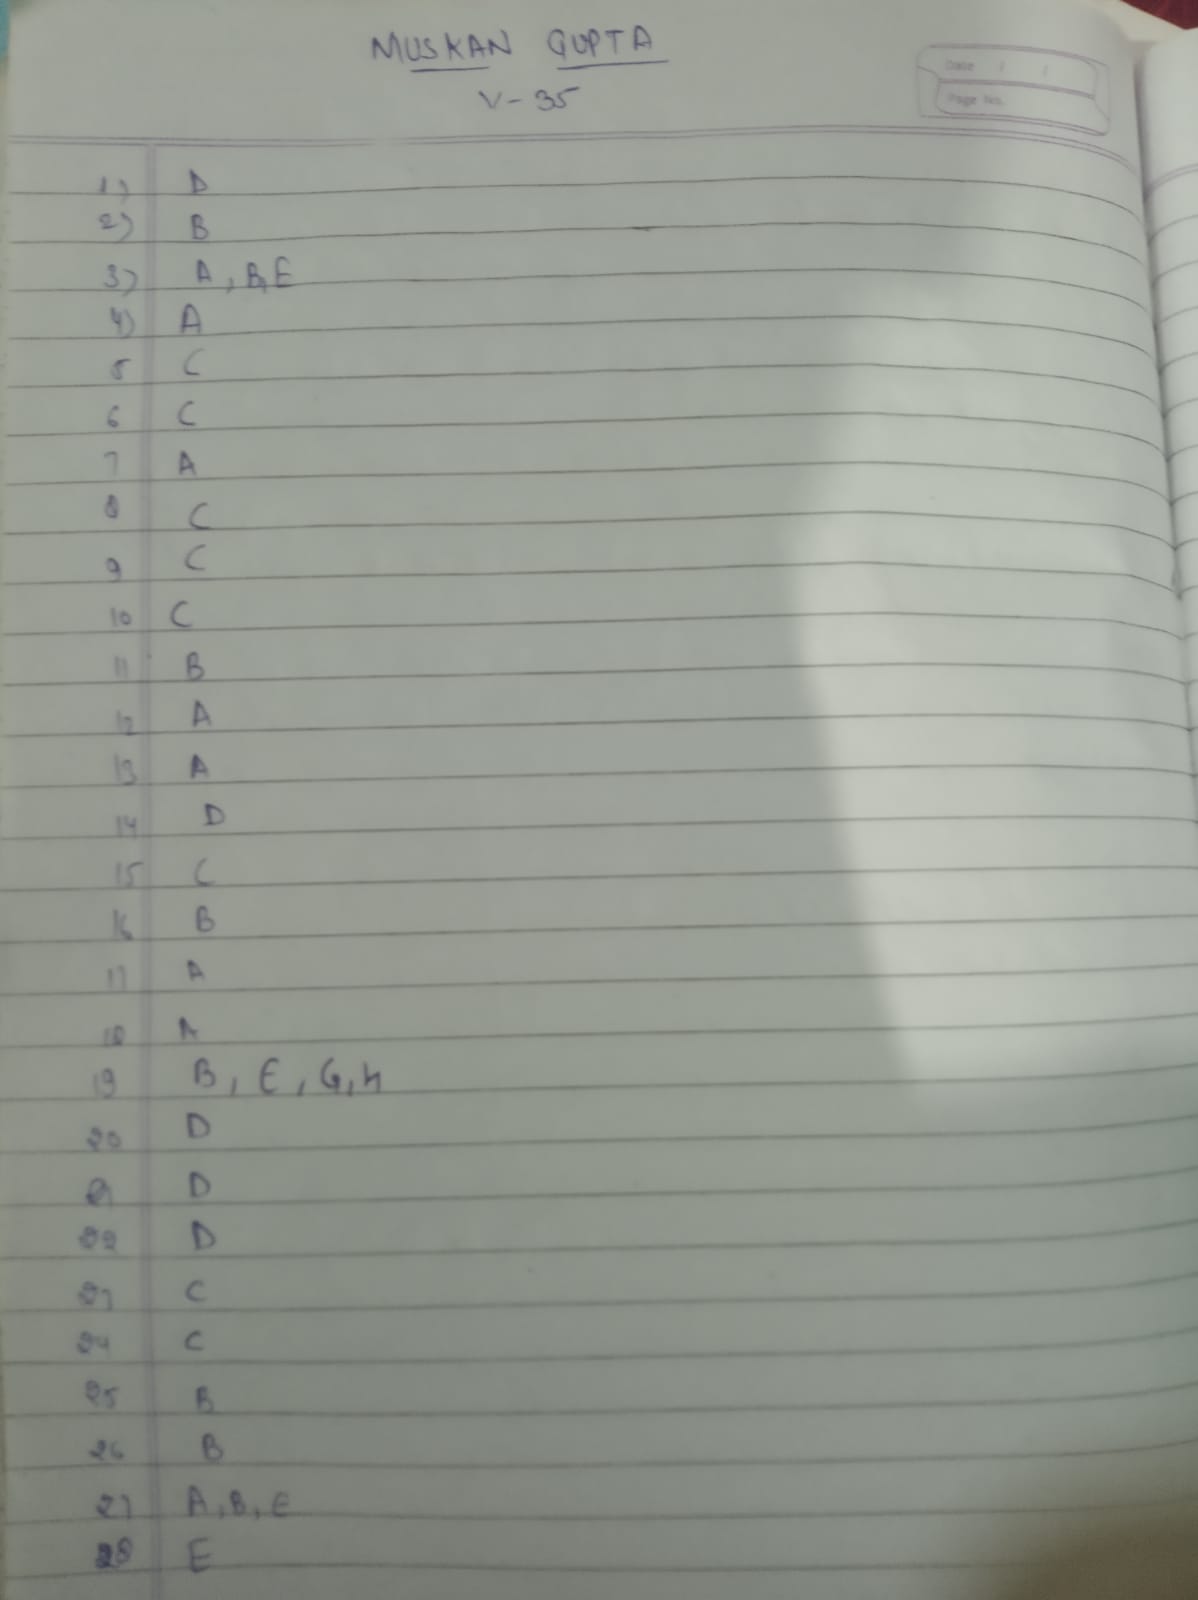 MUSKAN GUPTA
V-35
Date / /
Page No.
1) D
2) B
3) A, B, E
4) A
5 C
6 C
7 A
8 C
9 C
10 C
11 B
12 A
13 A
14 D
15 C
16 B
17 A
18 A
19 B, E, G, H
20 D
21 D
22 D
23 C
24 C
25 B
26 B
27 A, B, E
28 E